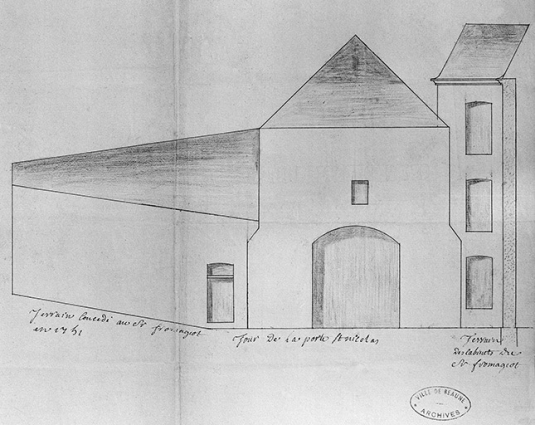 Terrain Concedé au Sr fromageot
en 1751
Tour De la porte St nicolas
Terrain
des labnots du
Sr fromageot
VILLE DE BEAUNE
ARCHIVES